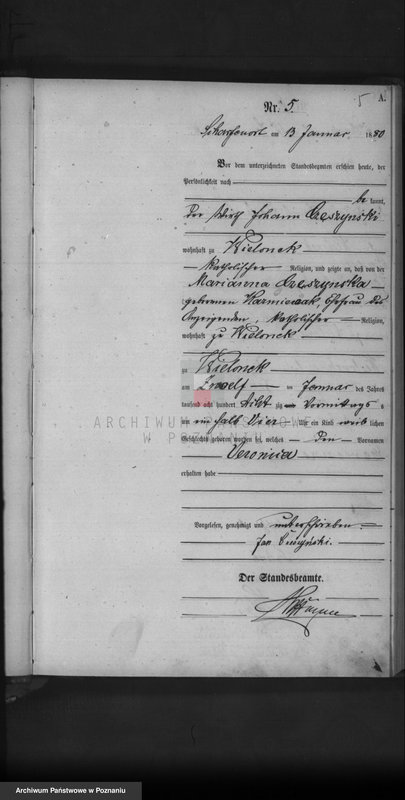 5 A.
Nr. 5.
Scharfenort am 13 Januar 1880
Vor dem unterzeichneten Standesbeamten erschien heute, der
Persönlichkeit nach
be kannt,
der Wirth Johann Ceszynski
wohnhaft zu Wielonek
katholischer Religion, und zeigte an, daß von der
Marianna Ceszynska
geborenen Kazmierczak, Ehefrau des
Anzeigenden, katholischer Religion,
wohnhaft zu Wielonek
zu Wielonek
am Zwoelf ten Januar des Jahres
tausend acht hundert acht zig Vormittags
um ein halb Vier Uhr ein Kind weib lichen
Geschlechts geboren worden sei, welches den Vornamen
Veronica
erhalten habe
ARCHIWUM PAŃSTWOWE
W POZNANIU
Vorgelesen, genehmigt und unterschrieben
Jan
Der Standesbeamte.
Archiwum Państwowe w Poznaniu